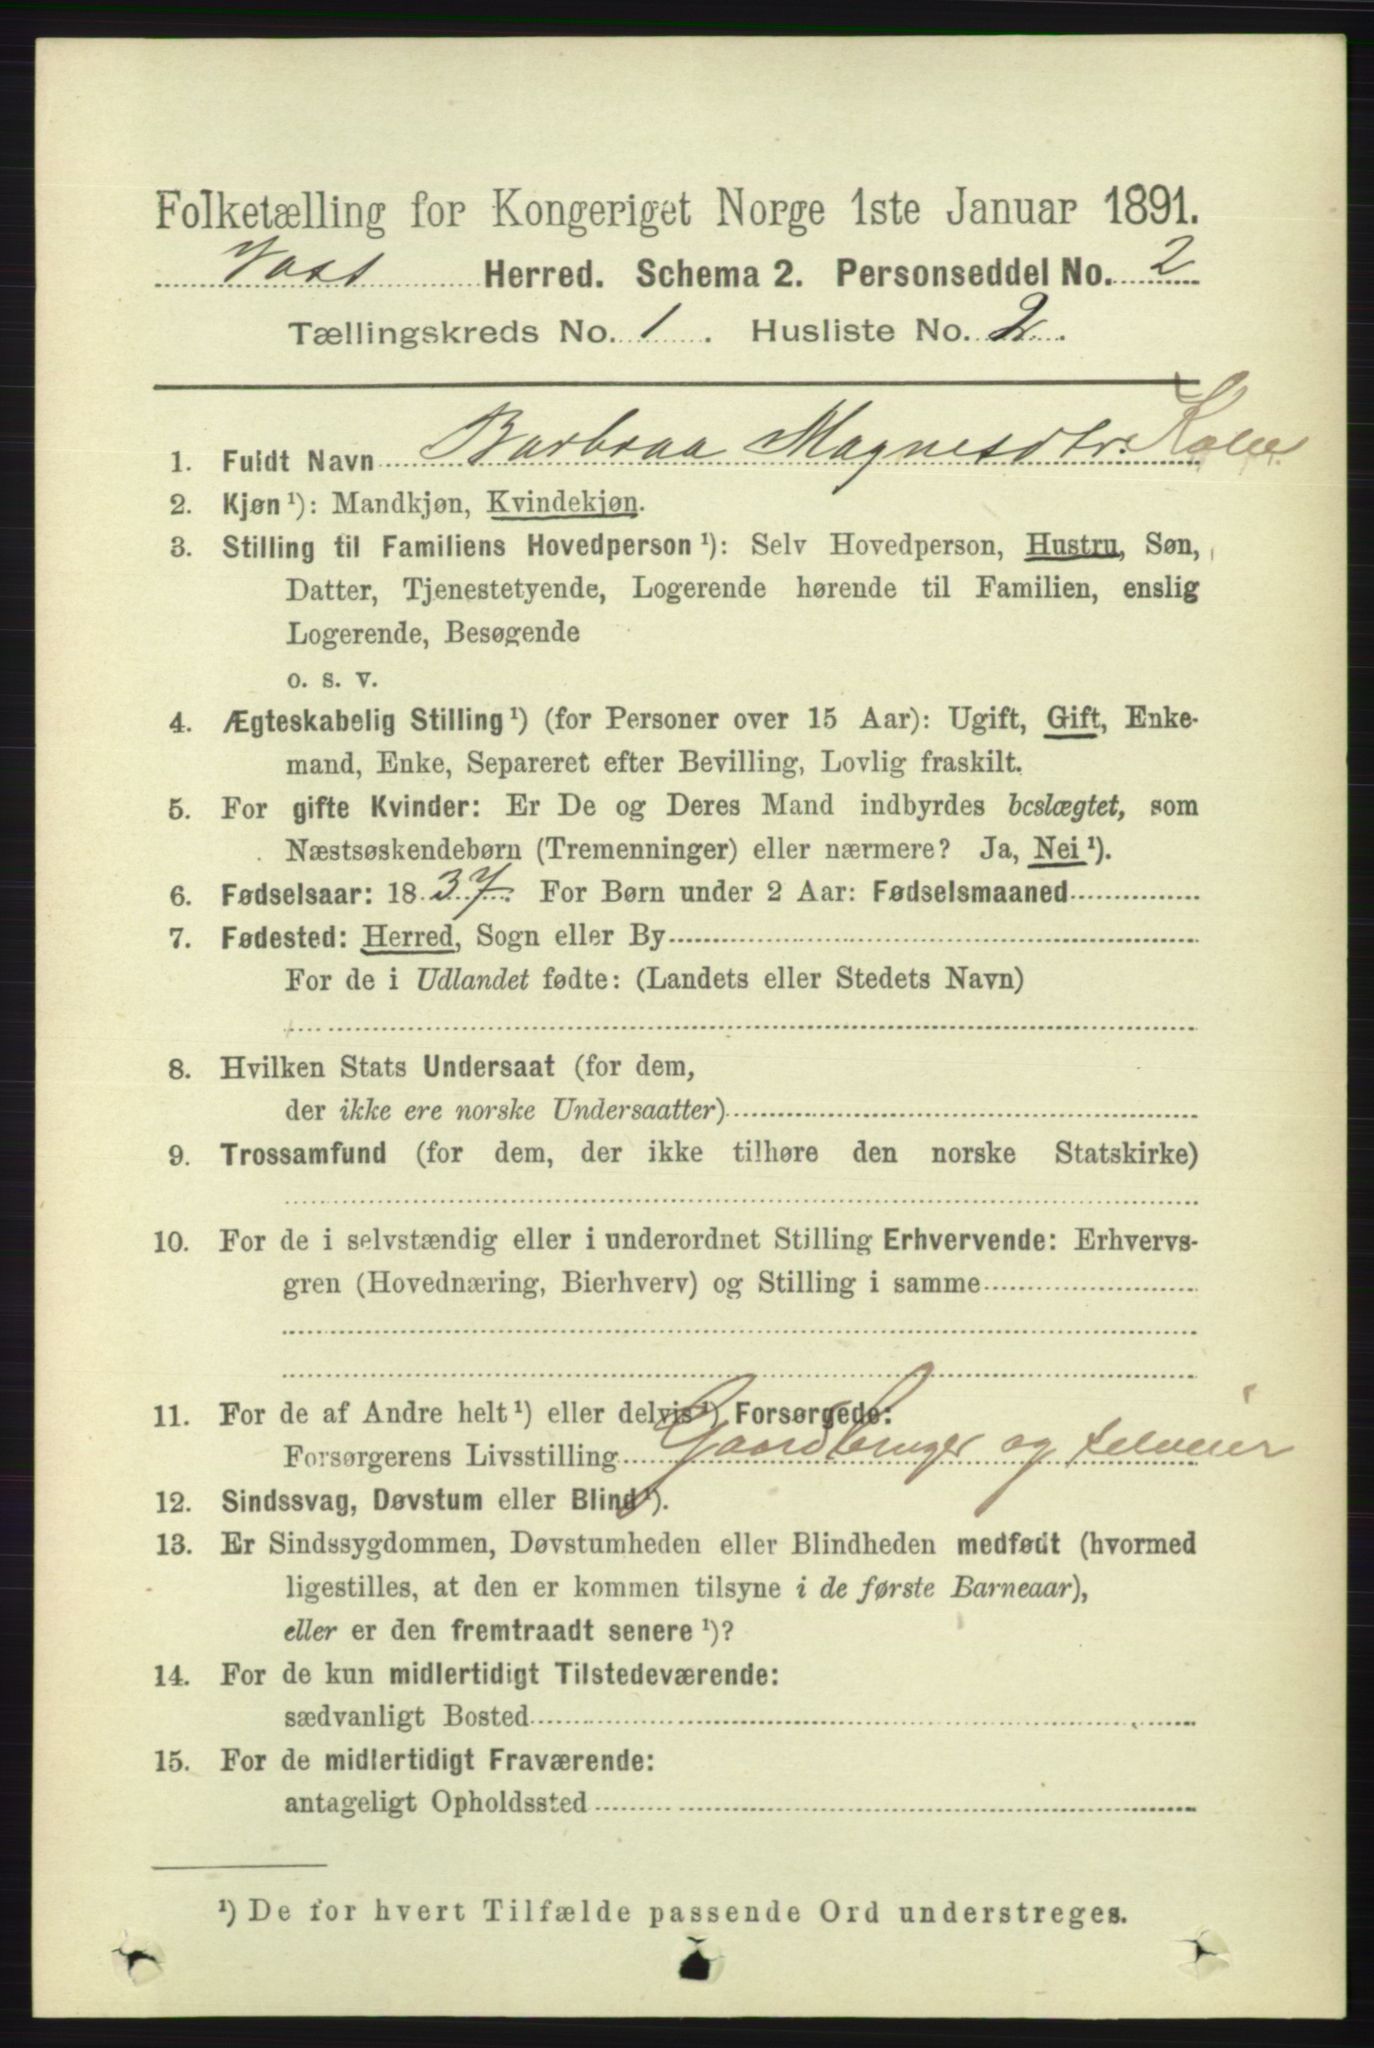 Folketælling for Kongeriget Norge 1ste Januar 1891.
Voss Herred. Schema 2. Personseddel No. 2
Tællingskreds No. 1. Husliste No. 2.
1. Fuldt Navn Barbraa Magnesdtr.
2. Kjøn ¹): Mandkjøn, Kvindekjøn.
3. Stilling til Familiens Hovedperson ¹): Selv Hovedperson, Hustru, Søn,
Datter, Tjenestetyende, Logerende hørende til Familien, enslig
Logerende, Besøgende
o. s. v.
4. Ægteskabelig Stilling ¹) (for Personer over 15 Aar): Ugift, Gift, Enke-
mand, Enke, Separeret efter Bevilling, Lovlig fraskilt.
5. For gifte Kvinder: Er De og Deres Mand indbyrdes beslægtet, som
Næstsøskendebørn (Tremenninger) eller nærmere? Ja, Nei ¹).
6. Fødselsaar: 1837. For Børn under 2 Aar: Fødselsmaaned
7. Fødested: Herred, Sogn eller By
For de i Udlandet fødte: (Landets eller Stedets Navn)
8. Hvilken Stats Undersaat (for dem,
der ikke ere norske Undersaatter)
9. Trossamfund (for dem, der ikke tilhøre den norske Statskirke)
10. For de i selvstændig eller i underordnet Stilling Erhvervende: Erhvervs-
gren (Hovednæring, Bierhverv) og Stilling i samme
11. For de af Andre helt ¹) eller delvis ¹) Forsørgede:
Forsørgerens Livsstilling Gaardbruger og selveier
12. Sindssvag, Døvstum eller Blind ¹).
13. Er Sindssygdommen, Døvstumheden eller Blindheden medfødt (hvormed
ligestilles, at den er kommen tilsyne i de første Barneaar),
eller er den fremtraadt senere ¹)?
14. For de kun midlertidigt Tilstedeværende:
sædvanligt Bosted
15. For de midlertidigt Fraværende:
antageligt Opholdssted
¹) De for hvert Tilfælde passende Ord understreges.